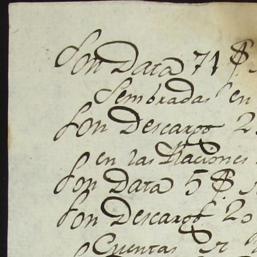 Son Data 71 $
Sembradas en
Son Descargo 2
en las Raciones
Son Data 5 $
Son Descargo 20
Cuentas